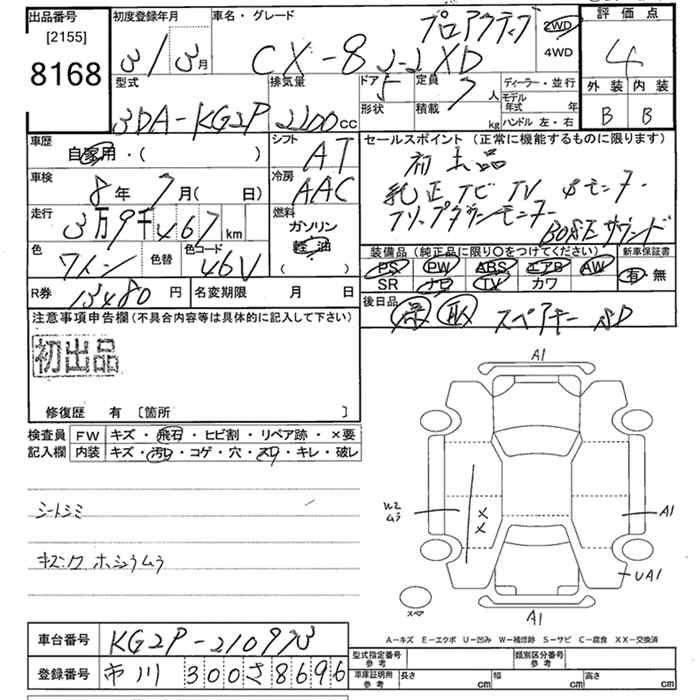 出品番号
[2155]
8168
初度登録年月
3/3月
車名・グレード
プロアクティブ
CX-8
XD
2WD
4WD
評価点
4
外装 内装
B B
型式
3DA-KG2P
排気量
2200cc
ドア
5
形状
定員
7人
積載
kg
ディーラー・並行
モデル年式 年
ハンドル 左・右
車歴
自家用・( )
シフト
AT
車検
8年7月( 日)
冷房
AAC
走行
3万9千467km
燃料
ガソリン
軽油
( )
色
ワイン
色替
色コード
46V
R券
13480円
名変期限 月 日
セールスポイント(正常に機能するものに限ります)
初出品
純正ナビTV
フリップダウンモニター
BOSEサウンド
装備品(純正品に限り○をつけてください)
PS PW ABS エアB AW
SR ナビ TV カワ
新車保証書
有・無
後日品
保 取 スペアキー SD
注意事項申告欄(不具合内容等は具体的に記入して下さい)
初出品
修復歴 有 [箇所 ]
検査員記入欄
FW キズ・飛石・ヒビ割・リペア跡・×要
内装 キズ・汚れ・コゲ・穴・スレ・キレ・破レ
シートシミ
A1
ムラ
A1
UA1
A1
スペア
A-キズ E-エクボ U-凹み W-補修跡 S-サビ C-腐食 XX-交換済
車台番号
KG2P-210973
登録番号
市川 300 さ 8696
型式指定番号
参考
類別区分番号
参考
車庫証明用
参考
長さ cm
幅 cm
高さ cm